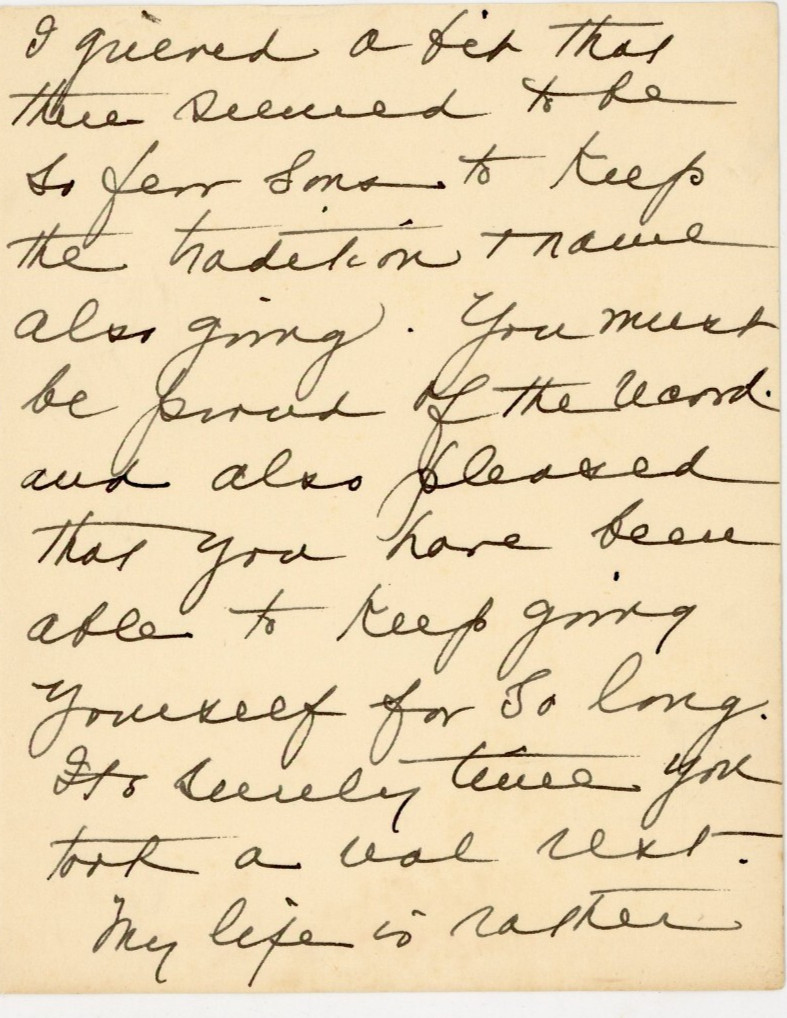 I grieved a bit that
there seemed to be
so few sons to keep
the tradition + name
also going. You must
be proud of the record.
and also pleased
that you have been
able to keep going
yourself for so long.
Its surely time you
took a real rest.
My life is rather